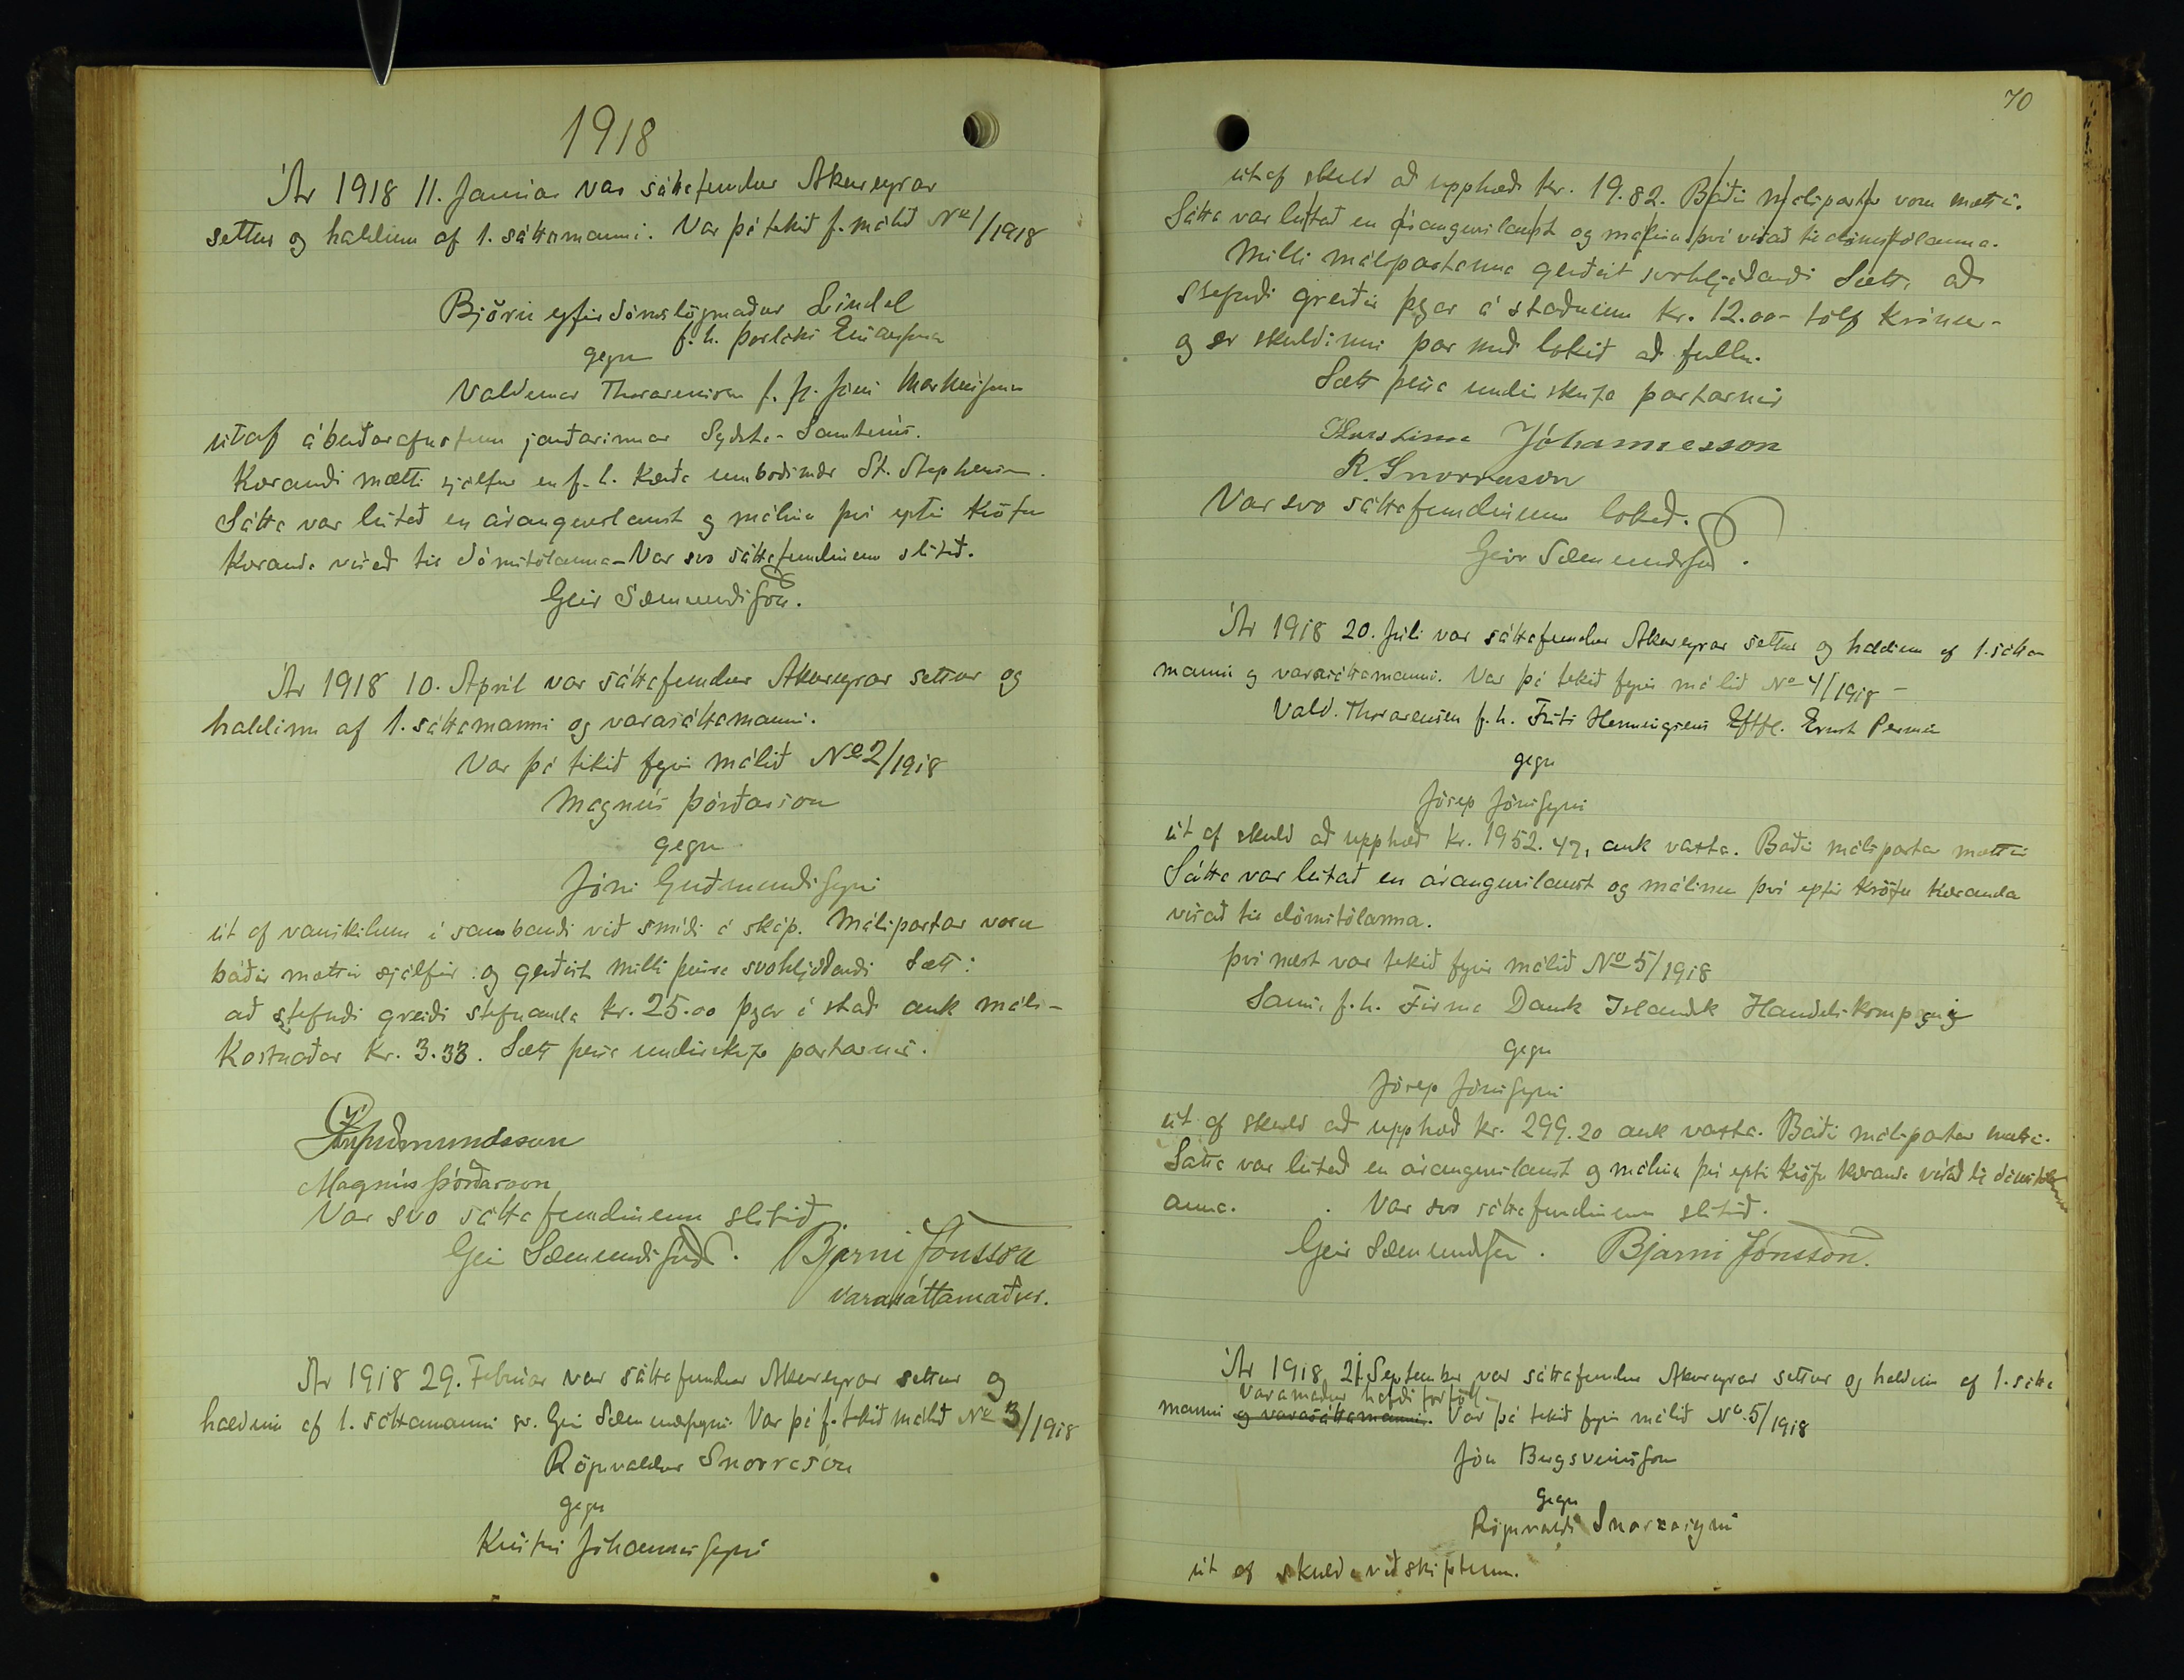 1918
Ár 1918 11. Januar var sáttafundur Akureyrar
settur og haldinn af 1. sáttamanni. Var þá tekið f. málið No 1/1918
Björn yfirdómslögmaður Líndal
f. h. Þorláks Einarssonar
gegn
Valdemar Thorarensen f. h. Jóns
útaf ábúðarafnotum jarðarinnar Syðsta-Samtúns.
Kærandi mætti sjálfur en f. h. kærða umboðsmaðr St. Stephensen.
Sátta var leitað en árangurslaust og málinu því eptir kröfu
kæranda vísað til dómstólanna - Var svo sáttafundinum slitið.
Geir Sæmundsson.
Ár 1918 10. Apríl var sáttafundur Akureyrar settur og
haldinn af 1. sáttamanni og varasáttamanni.
Var þá tekið fyrir málið No 2/1918
Magnús Þórðarson
gegn
Jóni Guðmundssyni
út af vanskilum í sambandi við smíði á skáp. Málspartar voru
báðir mættir sjálfir og gerðist milli þeirra svohljóðandi sætt:
að stefndi greiði stefnanda kr. 25.00 þegar í stað auk máls-
kostnaðar kr. 3.33. Sætt þessa undirskrifa partarnir.
Jón Guðmundsson
Magnús Þórðarson
Var svo sáttafundinum slitið.
Geir Sæmundsson. Bjarni Jónsson
varasáttamaður.
Ár 1918 29. Februar var sáttafundur Akureyrar settur og
haldinn af 1. sáttamanni sr. Geir Sæmundssyni. Var þá f. tekið málið No 3/1918
Rögnvaldur Snorrason
gegn
Kristni Jóhannessyni
70
út af skuld að upphæð kr. 19.82. Báðir málspartar voru mættir.
Sátta var leitað en árangurslaust og málinu því vísað til dómstólanna.
Milli málspartanna gerðist svohljóðandi sætt, að
stefndi greiðir þegar á staðnum kr. 12.00 - tólf krónur -
og er skuldinni þar með lokið að fullu.
Sætt þessa undirskrifa partarnir
Kristinn Jóhannesson
R. Snorrason
Var svo sáttafundinum lokið.
Geir Sæmundsson.
Ár 1918 20. Júli var sáttafundur Akureyrar settur og haldinn af 1. sátta
manni og varasáttamanni. Var þá tekið fyrir málið No 4/1918 -
Vald. Thorarensen f. h. Fritz Henningsens Eftfl. Ernst Permin
gegn
Jósep Jónssyni
út af skuld að upphæð kr. 1952.47, auk vaxta. Báðir málspartar mættir
Sátta var leitað en árangurslaust og málinu því eptir kröfu kæranda
vísað til dómstólanna.
Því næst var tekið fyrir málið No 5/1918
Sami, f. h. Firma Dansk Islandsk Handelskompagni
gegn
Jósep Jónssyni
út af skuld að upphæð kr. 299.20 auk vaxta. Báðir málspartar mættir.
Sátta var leitað en árangurslaust og málinu því eptir kröfu kæranda vísað til dómstól
anna. Var svo sáttafundinum slitið.
Geir Sæmundsson. Bjarni Jónsson.
Ár 1918 21. September var sáttafundur Akureyrar settur og haldinn af 1. sátta
Varamaður hafði forföll
manni og varasáttamanni. Var þá tekið fyrir málið No. 5/1918
Jón Bergsveinsson
gegn
Rögnvaldi Snorrasyni
út af skuldaviðskiptum.